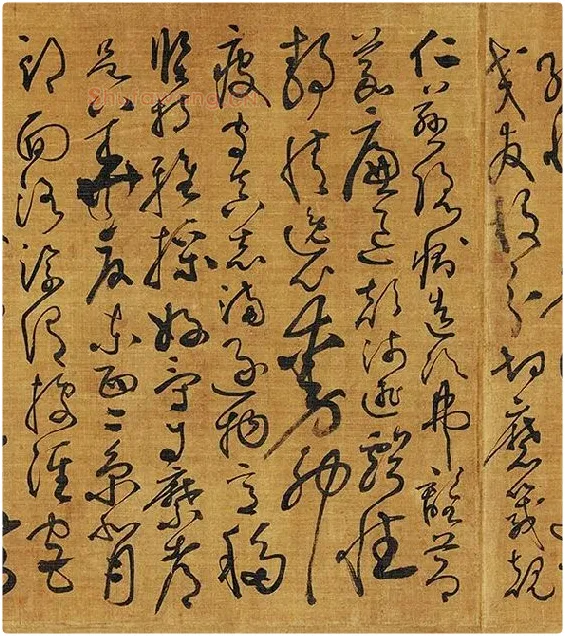 交友投分切磨箴規
仁慈隱惻造次弗離節
義廉退顛沛匪虧性
靜情逸心動神
疲守真志滿逐物意移
堅持雅操好爵自縻都
邑華夏東西二京背
邙面洛浮渭據涇宮